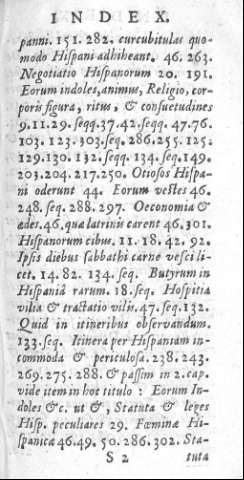 INDEX.
panni. 151. 282. curcubitulas quo-
modo Hispani adhibeant. 46. 263.
Negotiatio Hispanorum 20. 191.
Eorum indoles, animus, Religio, cor-
poris figura, ritus, & consuetudines
9. 11. 29. seqq. 37. 42. seqq. 47. 76.
103. 123. 303. seq. 286. 255. 125.
129. 130. 132. seqq. 134. seq. 149.
203. 204. 217. 250. Otiosos Hispa-
ni oderunt 44. Eorum vestes 46.
248. seq. 288. 297. Oeconomia &
ædes. 46. quæ latrinis carent 46. 301.
Hispanorum cibus. 11. 18. 42. 92.
Ipsis diebus sabbathi carne vesci li-
cet. 14. 82. 134. seq. Butyrum in
Hispaniâ rarum. 18. seq. Hospitia
vilia & tractatio vilis. 47. seq. 132.
Quid in itineribus observandum.
133. seq. Itinera per Hispaniam in-
commoda & periculosa. 238. 243.
269. 275. 288. & passim in 2. cap.
vide item in hoc titulo : Eorum In-
doles &c. ut &, Statuta & leges
Hisp. peculiares 29. Fœminæ Hi-
spanicæ 46. 49. 50. 286. 302. Sta-
S 2 tuta